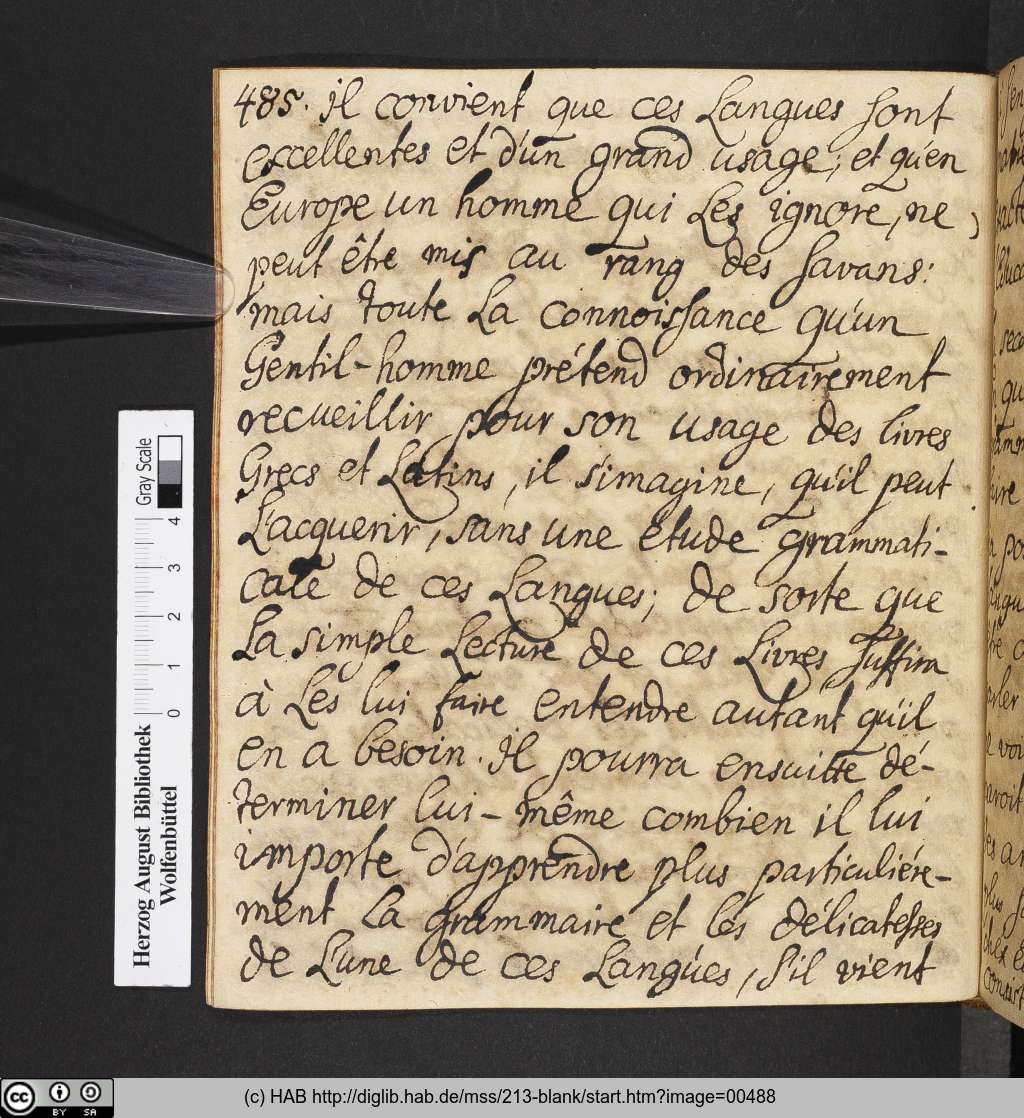 485. il convient que ces Langues sont
excellentes et d'un grand usage; et qu'en
Europe un homme qui Les ignore, ne
peut être mis au rang des savans:
mais toute La connoissance qu'un
Gentil-homme prétend ordinairement
recueillir pour son usage des livres
Grecs et Latins, il s'imagine, qu'il peut
L'acquerir, sans une étude grammati-
cale de ces Langues; de sorte que
La simple Lecture de ces Livres suffira
à Les lui faire entendre autant qu'il
en a besoin. Il pourra ensuitte dé-
terminer lui-même combien il lui
importe d'apprendre plus particuliére-
ment La grammaire et les délicatesses
de L'une de ces Langues, s'il vient
Herzog August Bibliothek
Wolfenbüttel
0 1 2 3 4
Gray Scale
cc BY SA
(c) HAB http://diglib.hab.de/mss/213-blank/start.htm?image=00488